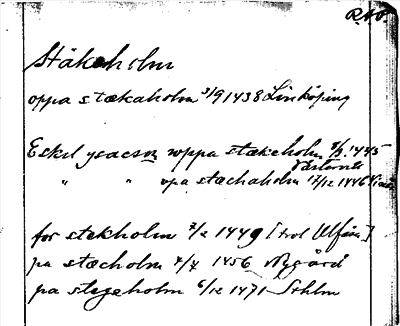 RAÖ
Stäkeholm
oppa stækaholm 3/9 1438 Linköping
Eskil ysacson wppa stækeholm 8/2 1445
Västervik
" " opa stæchaholm 17/12 1446
for stekholm 7/12 1449 [trol Ulfåsa]
pa stæcholm 4/4 1456 Nygård
pa stegeholm 6/12 1471 Sthlm